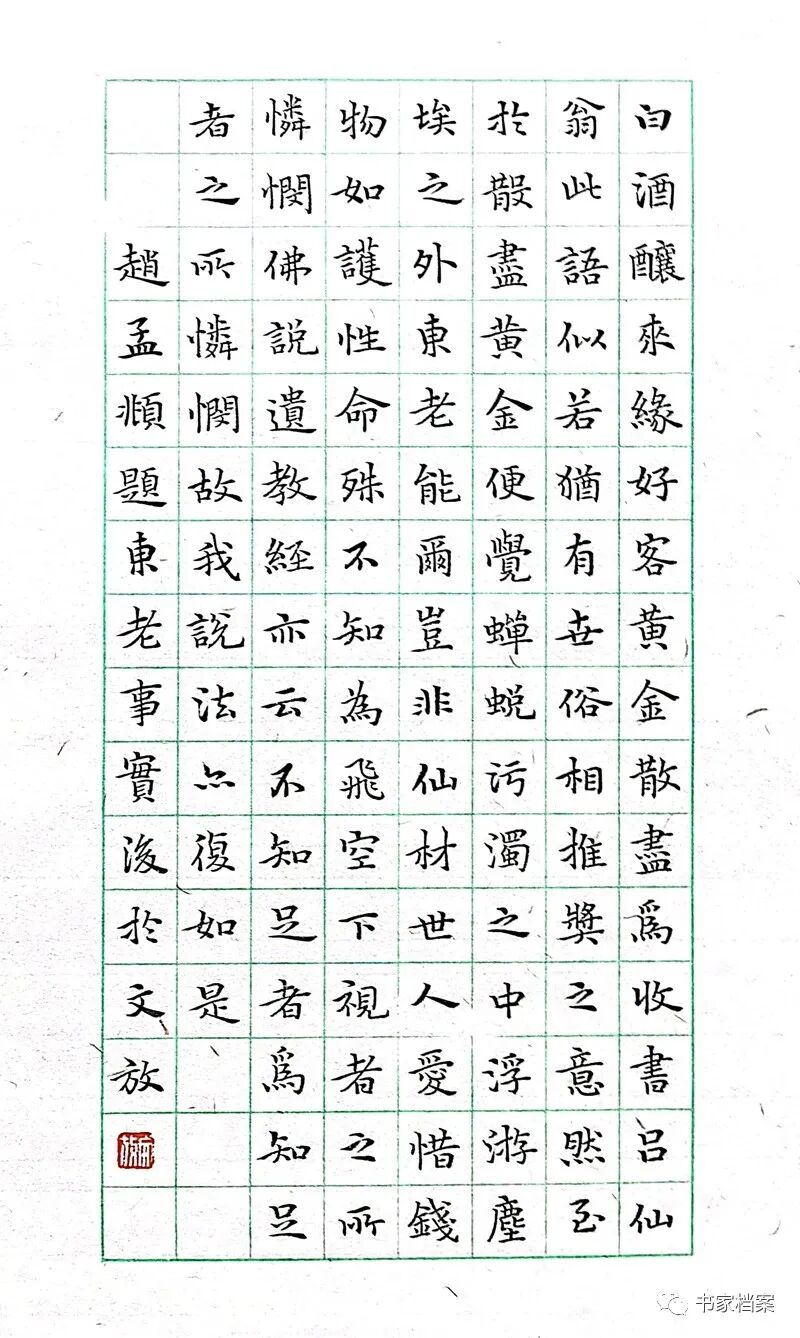 白酒釀來緣好客黃金散盡爲收書吕仙
翁此語似若猶有世俗相推獎之意然至
於散盡黃金便覺蟬蜕污濁之中浮游塵
埃之外東老能爾豈非仙材世人愛惜錢
物如護性命殊不知為飛空下視者之所
憐憫佛説遺教經亦云不知足者爲知足
者之所憐憫故我說法亦復如是
趙孟頫題東老事實後於文放
书家档案